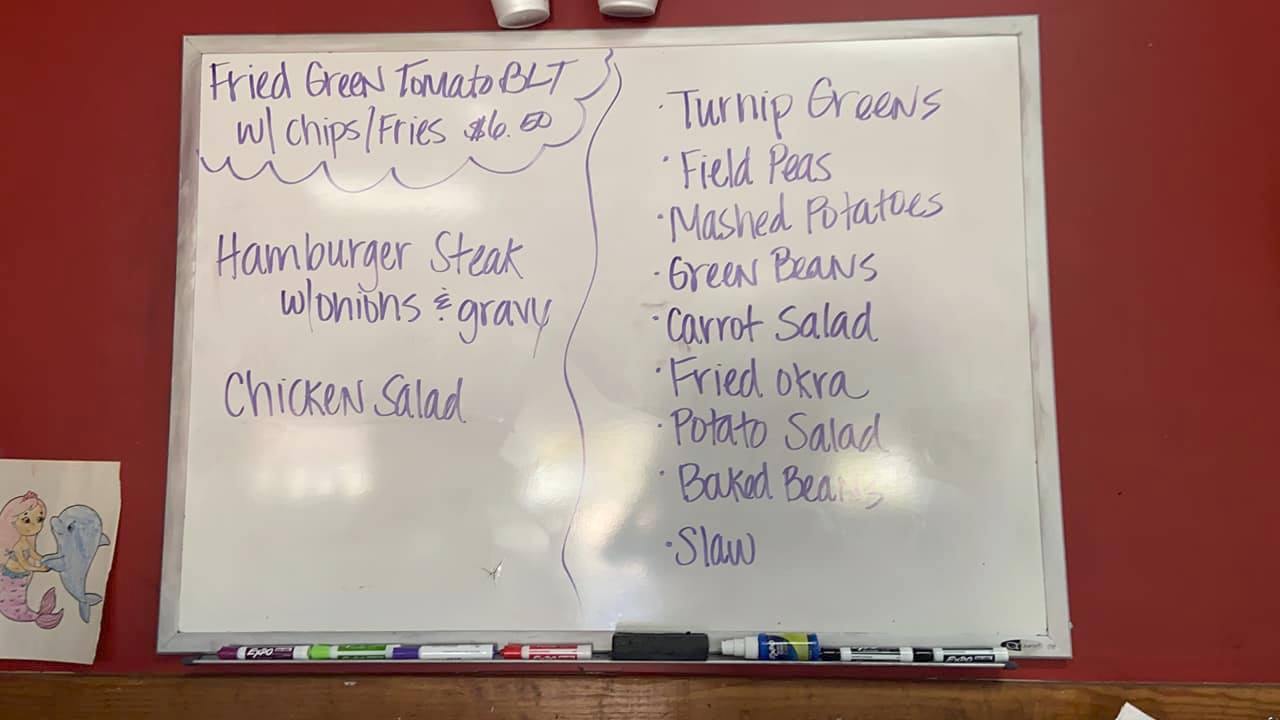 Fried Green Tomato BLT
w/ chips/Fries $6.50
Hamburger Steak
w/onions & gravy
Chicken Salad
· Turnip Greens
· Field Peas
· Mashed Potatoes
· Green Beans
· Carrot Salad
· Fried okra
· Potato Salad
· Baked Beans
· Slaw
EXPO
EXPO